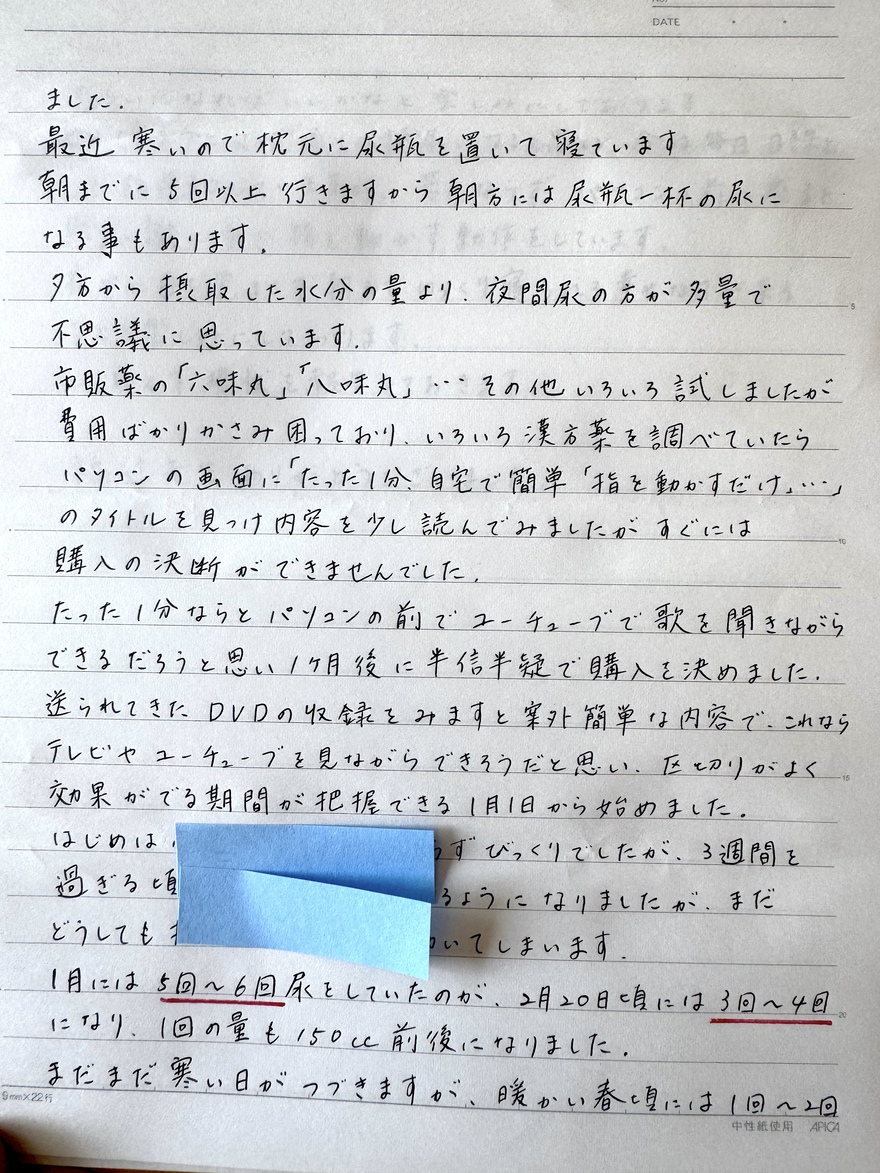 DATE
ました.
最近 寒いので枕元に尿瓶を置いて寝ています
朝までに5回以上行きますから朝方には尿瓶一杯の尿に
なる事もあります.
夕方から摂取した水分の量より、夜間尿の方が多量で
不思議に思っています.
市販薬の「六味丸」「八味丸」…その他いろいろ試しましたが
費用ばかりかさみ困っており、いろいろ漢方薬を調べていたら
パソコンの画面に「たった1分、自宅で簡単「指を動かすだけ」…」
のタイトルを見つけ内容を少し読んでみましたがすぐには
購入の決断ができませんでした.
たった1分ならとパソコンの前でユーチューブで歌を聞きながら
できるだろうと思い1ヶ月後に半信半疑で購入を決めました.
送られてきたDVDの収録をみますと案外簡単な内容で、これなら
テレビやユーチューブを見ながらできそうだと思い、区切りがよく
効果がでる期間が把握できる1月1日から始めました.
はじめは ずびっくりでしたが、3週間を
過ぎる頃 るようになりましたが、まだ
どうしても いてしまいます.
1月には5回〜6回尿をしていたのが、2月20日頃には3回〜4回
になり、1回の量も150cc前後になりました.
まだまだ寒い日がつづきますが、暖かい春頃には1回〜2回
9mm×22行
中性紙使用 APICA
5
10
15
20